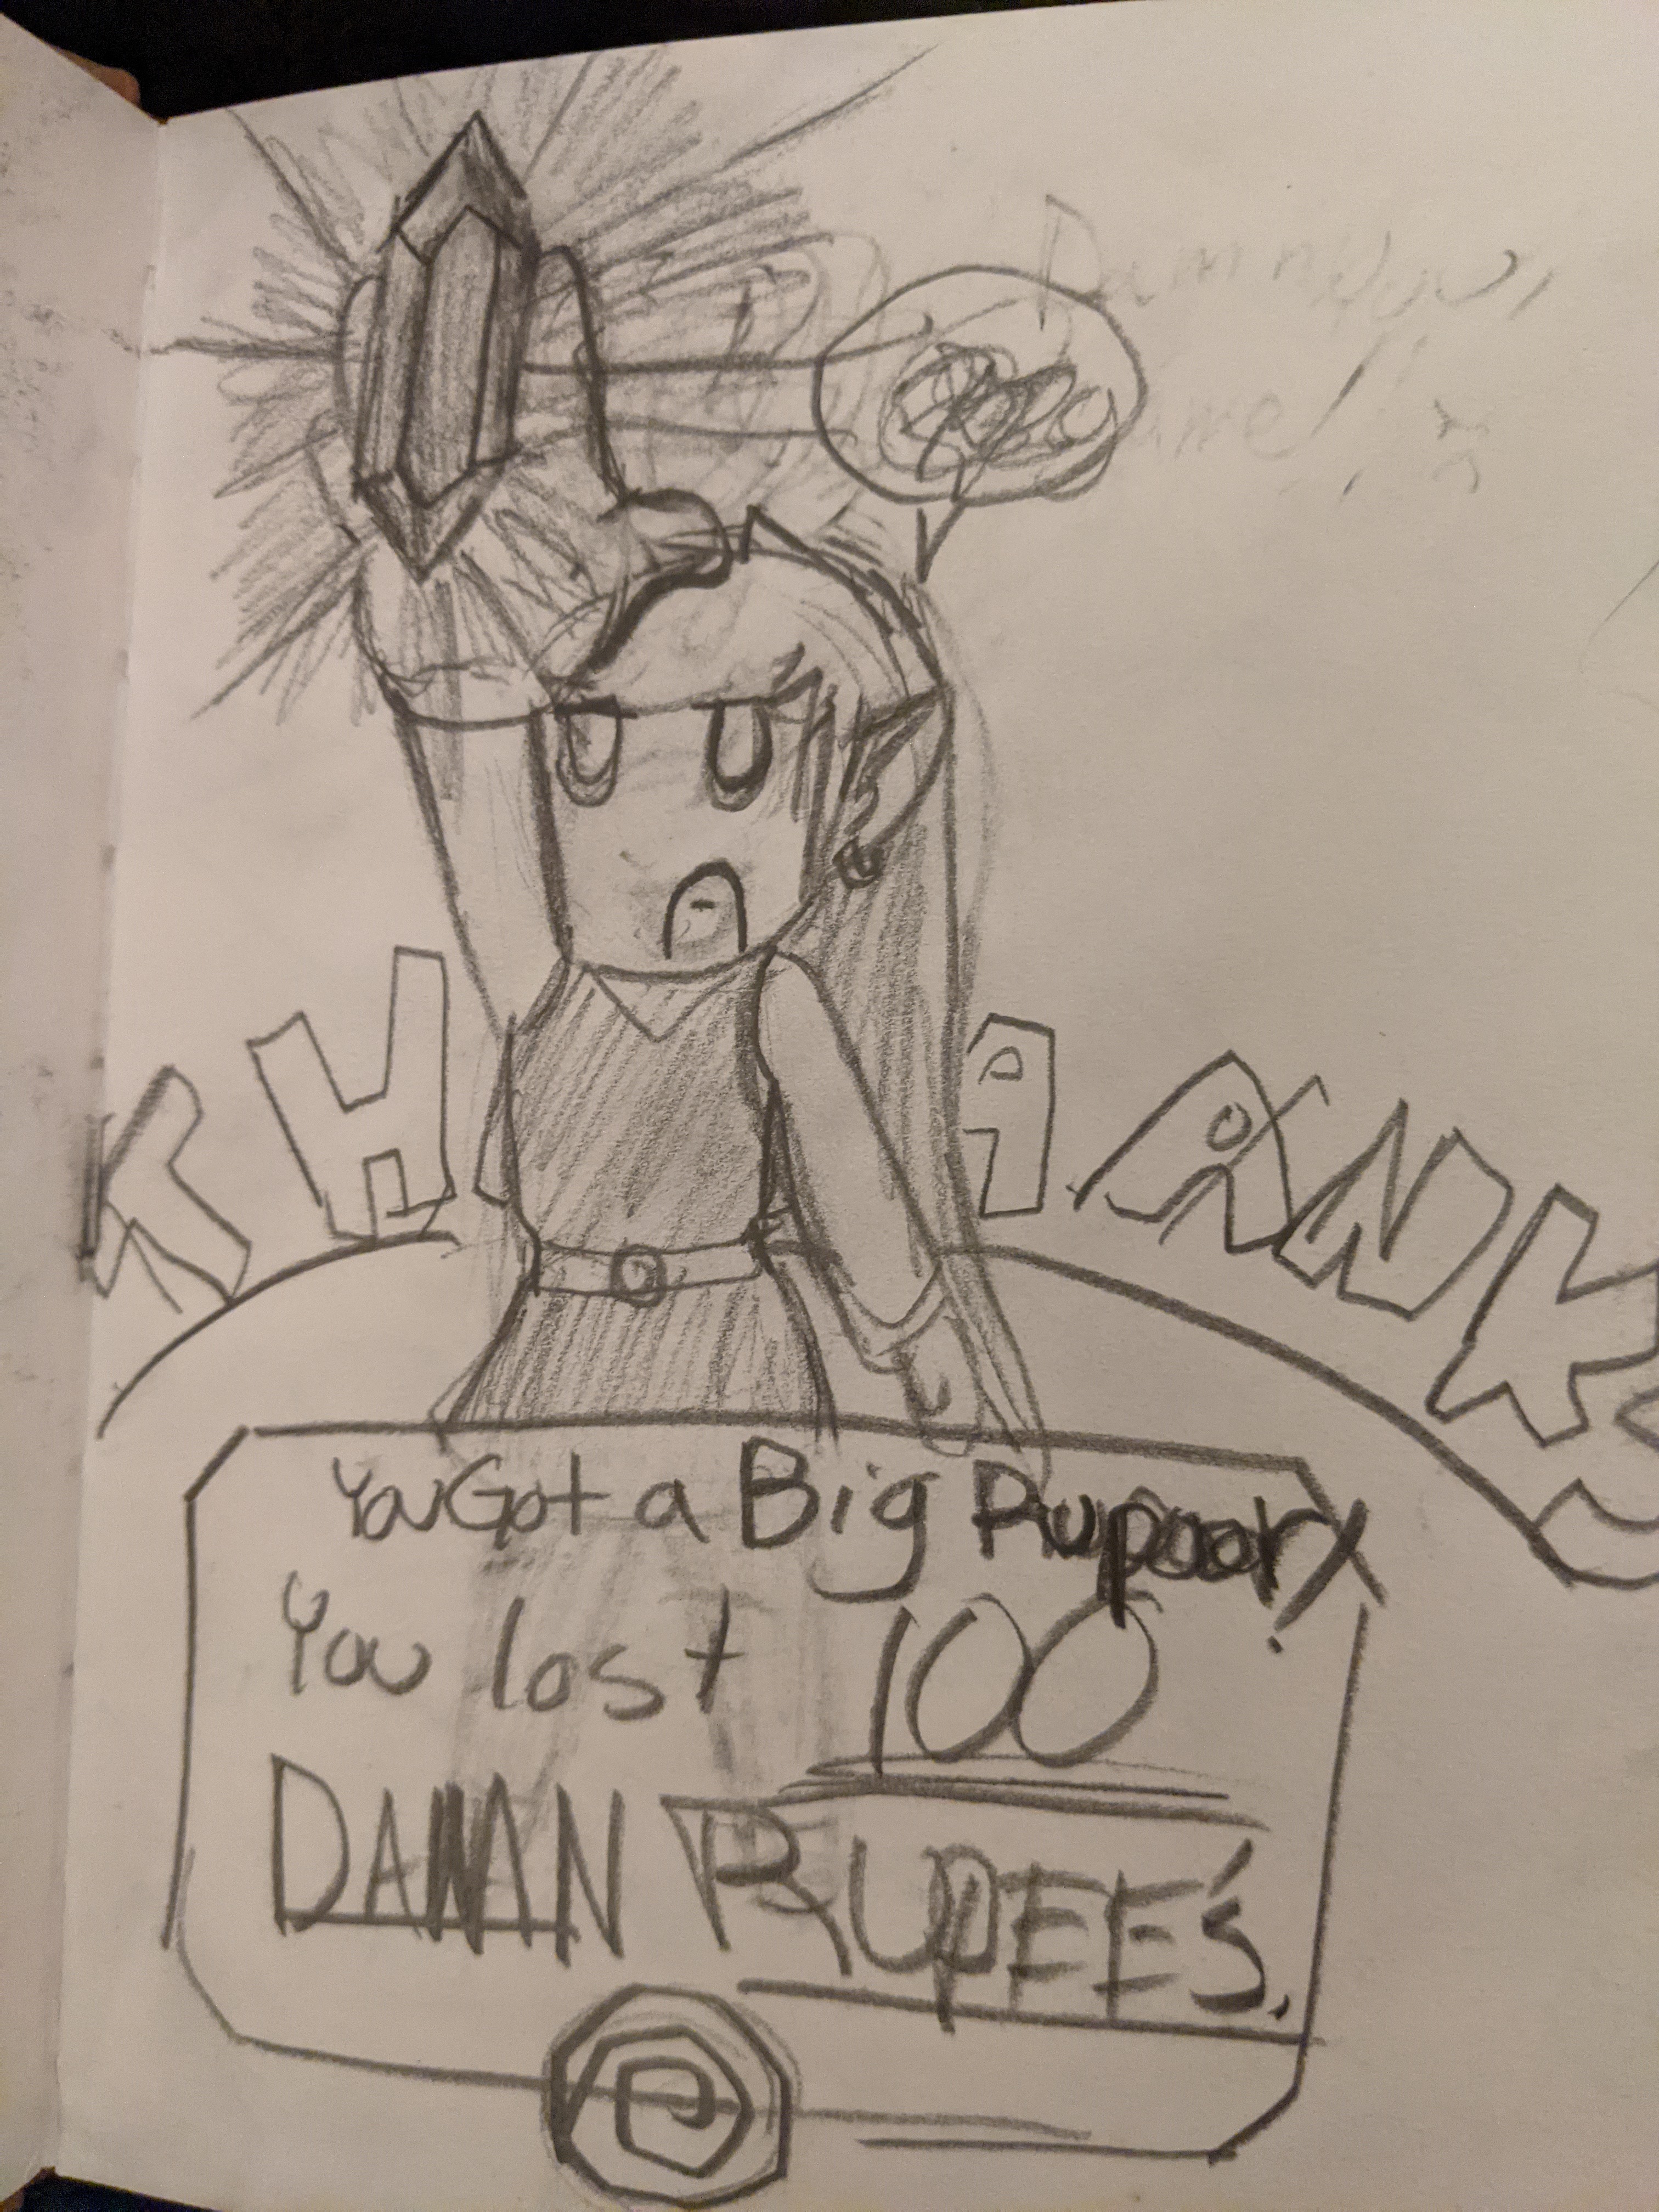 Damn you,
THANKS
You Got a Big Rupoor!
You lost 100
DAMN RUPEE'S.